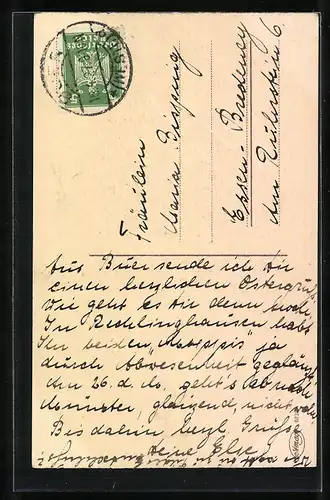 Deutsches
Reich
5
Fräulein
Maria Disping
Essen-Bredeney
Am Ruhrstein 6
Aus Buer sende ich dir
einen herzlichen Ostergruß.
Wie geht es dir denn
In Recklinghausen habt
Ihr beiden ja
durch Abwesenheit geglänzt
den 26. d. M. geht's ab nach
Münster, glänzend, nicht
Bis dahin herzl. Grüße
deine Else